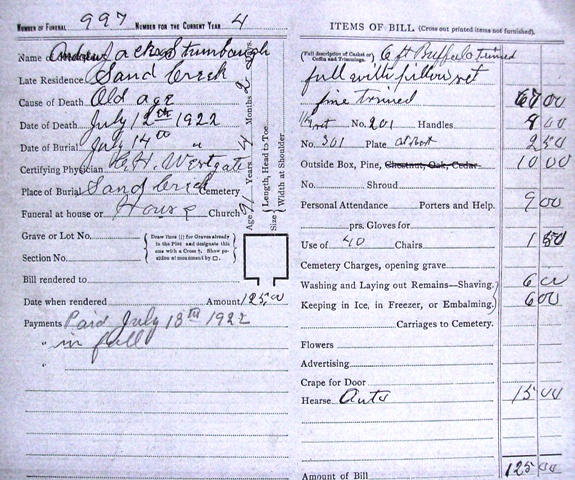 NUMBER OF FUNERAL 997 NUMBER FOR THE CURRENT YEAR 4
Name of Andrew Jackson Stumbaugh
Late Residence Sand Creek
Cause of Death Old age
Date of Death July 12th 1922
Date of Burial July 14th "
Certifying Physician Westgate
Place of Burial Sand Creek Cemetery
Funeral at house or House Church
Age 91 Years 4 Months 2 Days
Size { Length, Head to Toe
Width at Shoulder
Grave or Lot No.
Section No.
{ Draw lines (|) for Graves already in the Plot and designate this one with a Cross †. Show position of monument by □. }
Bill rendered to
Date when rendered Amount 125,00
Payments Paid July 18th 1922
" in full
"
ITEMS OF BILL (Cross out printed items not furnished).
(Full description of Casket or Coffin and Trimmings. 6 ft Buffalo trimed
full with pillow set
fine trimed 67 00
No. 201 Handles 8 00
No. 301 Plate 2 50
Outside Box, Pine, Chestnut, Oak, Cedar 10 00
No. Shroud
Personal Attendance Porters and Help. 9 00
prs. Gloves for
Use of 40 Chairs 1 50
Cemetery Charges, opening grave
Washing and Laying out Remains—Shaving. 6 00
Keeping in Ice, in Freezer, or Embalming, 6 00
Carriages to Cemetery.
Flowers
Advertising
Crape for Door
Hearse Auto 15 00
Amount of Bill 125 00